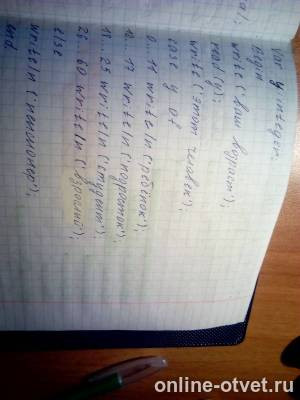 Var y integer:
Begin
write ('Ваш возраст');
read (y);
write ('этот человек');
case y of
0..11 write ln ('ребёнок');
12.. 17 write ln ('подросток');
18.. 25 write ln ('студент');
26.. 60 write ln ('взрослый');
else
write ln ('пенсионер');
end
online-otvet.ru